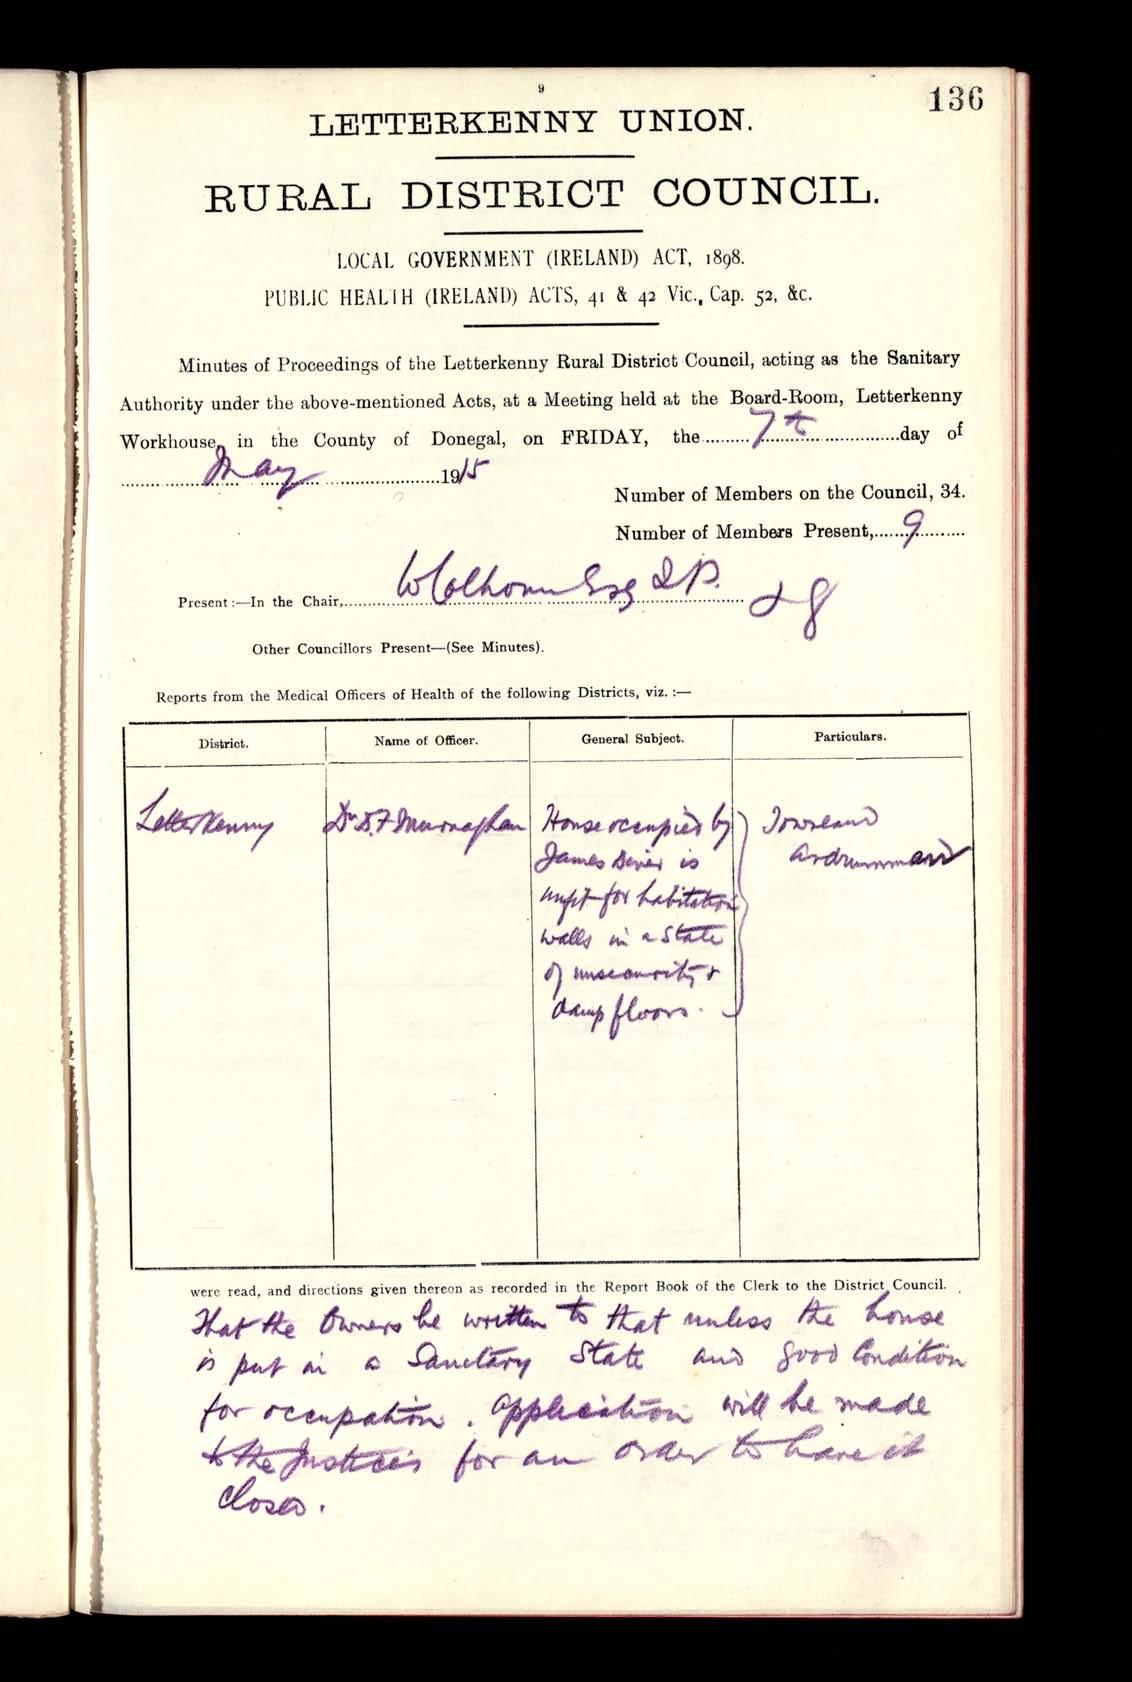 9
136
LETTERKENNY UNION.
RURAL DISTRICT COUNCIL.
LOCAL GOVERNMENT (IRELAND) ACT, 1898.
PUBLIC HEALTH (IRELAND) ACTS, 41 & 42 Vic., Cap. 52, &c.
Minutes of Proceedings of the Letterkenny Rural District Council, acting as the Sanitary
Authority under the above-mentioned Acts, at a Meeting held at the Board-Room, Letterkenny
Workhouse, in the County of Donegal, on FRIDAY, the 7th day of
May 1915
Number of Members on the Council, 34.
Number of Members Present, 9
Present:—In the Chair, W Colhoun Esq J.P. & 8
Other Councillors Present—(See Minutes).
Reports from the Medical Officers of Health of the following Districts, viz.:—
District. Name of Officer. General Subject. Particulars.
Letterkenny Dr D.F. House occupied by Townland
James Diver is Ardrummand
unfit for habitation
walls in a State
of unsecurity &
damp floors.
were read, and directions given thereon as recorded in the Report Book of the Clerk to the District Council.
That the Owners be written to that unless the house
is put in a Sanitary State and good Condition
for occupation. Application will be made
to the Justices for an order to have it
closed.